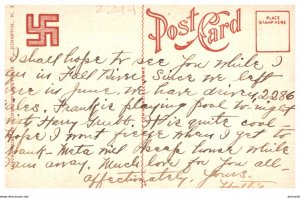 2314
Post Card
PLACE
STAMP HERE
I shall hope to see you while I
am in Fall River. Since we left
here in June, we have driven 2,296
miles. Frank is playing pool to-night
with Harry Grubb. It is quite cool
Hope I wont freeze when I get to
Frank - Meta will keep house while
am away. Much love for you all-
affectionately, yours.